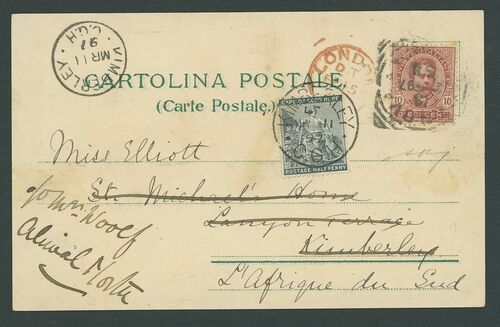 KIMBERLEY · C.G.H
MR 11
97
LONDON
CARTOLINA POSTALE.
(Carte Postale.)
10 DIECI CENT. 10
CAPE OF GOOD HOPE
POSTAGE HALFPENNY
KIMBERLEY
MR 11
97
C.G.H
Miss Elliott
St. Michael's Home
Lanyon Terrace
Kimberley
L'Afrique du Sud
c/o Mrs Woolf
Aliwal North